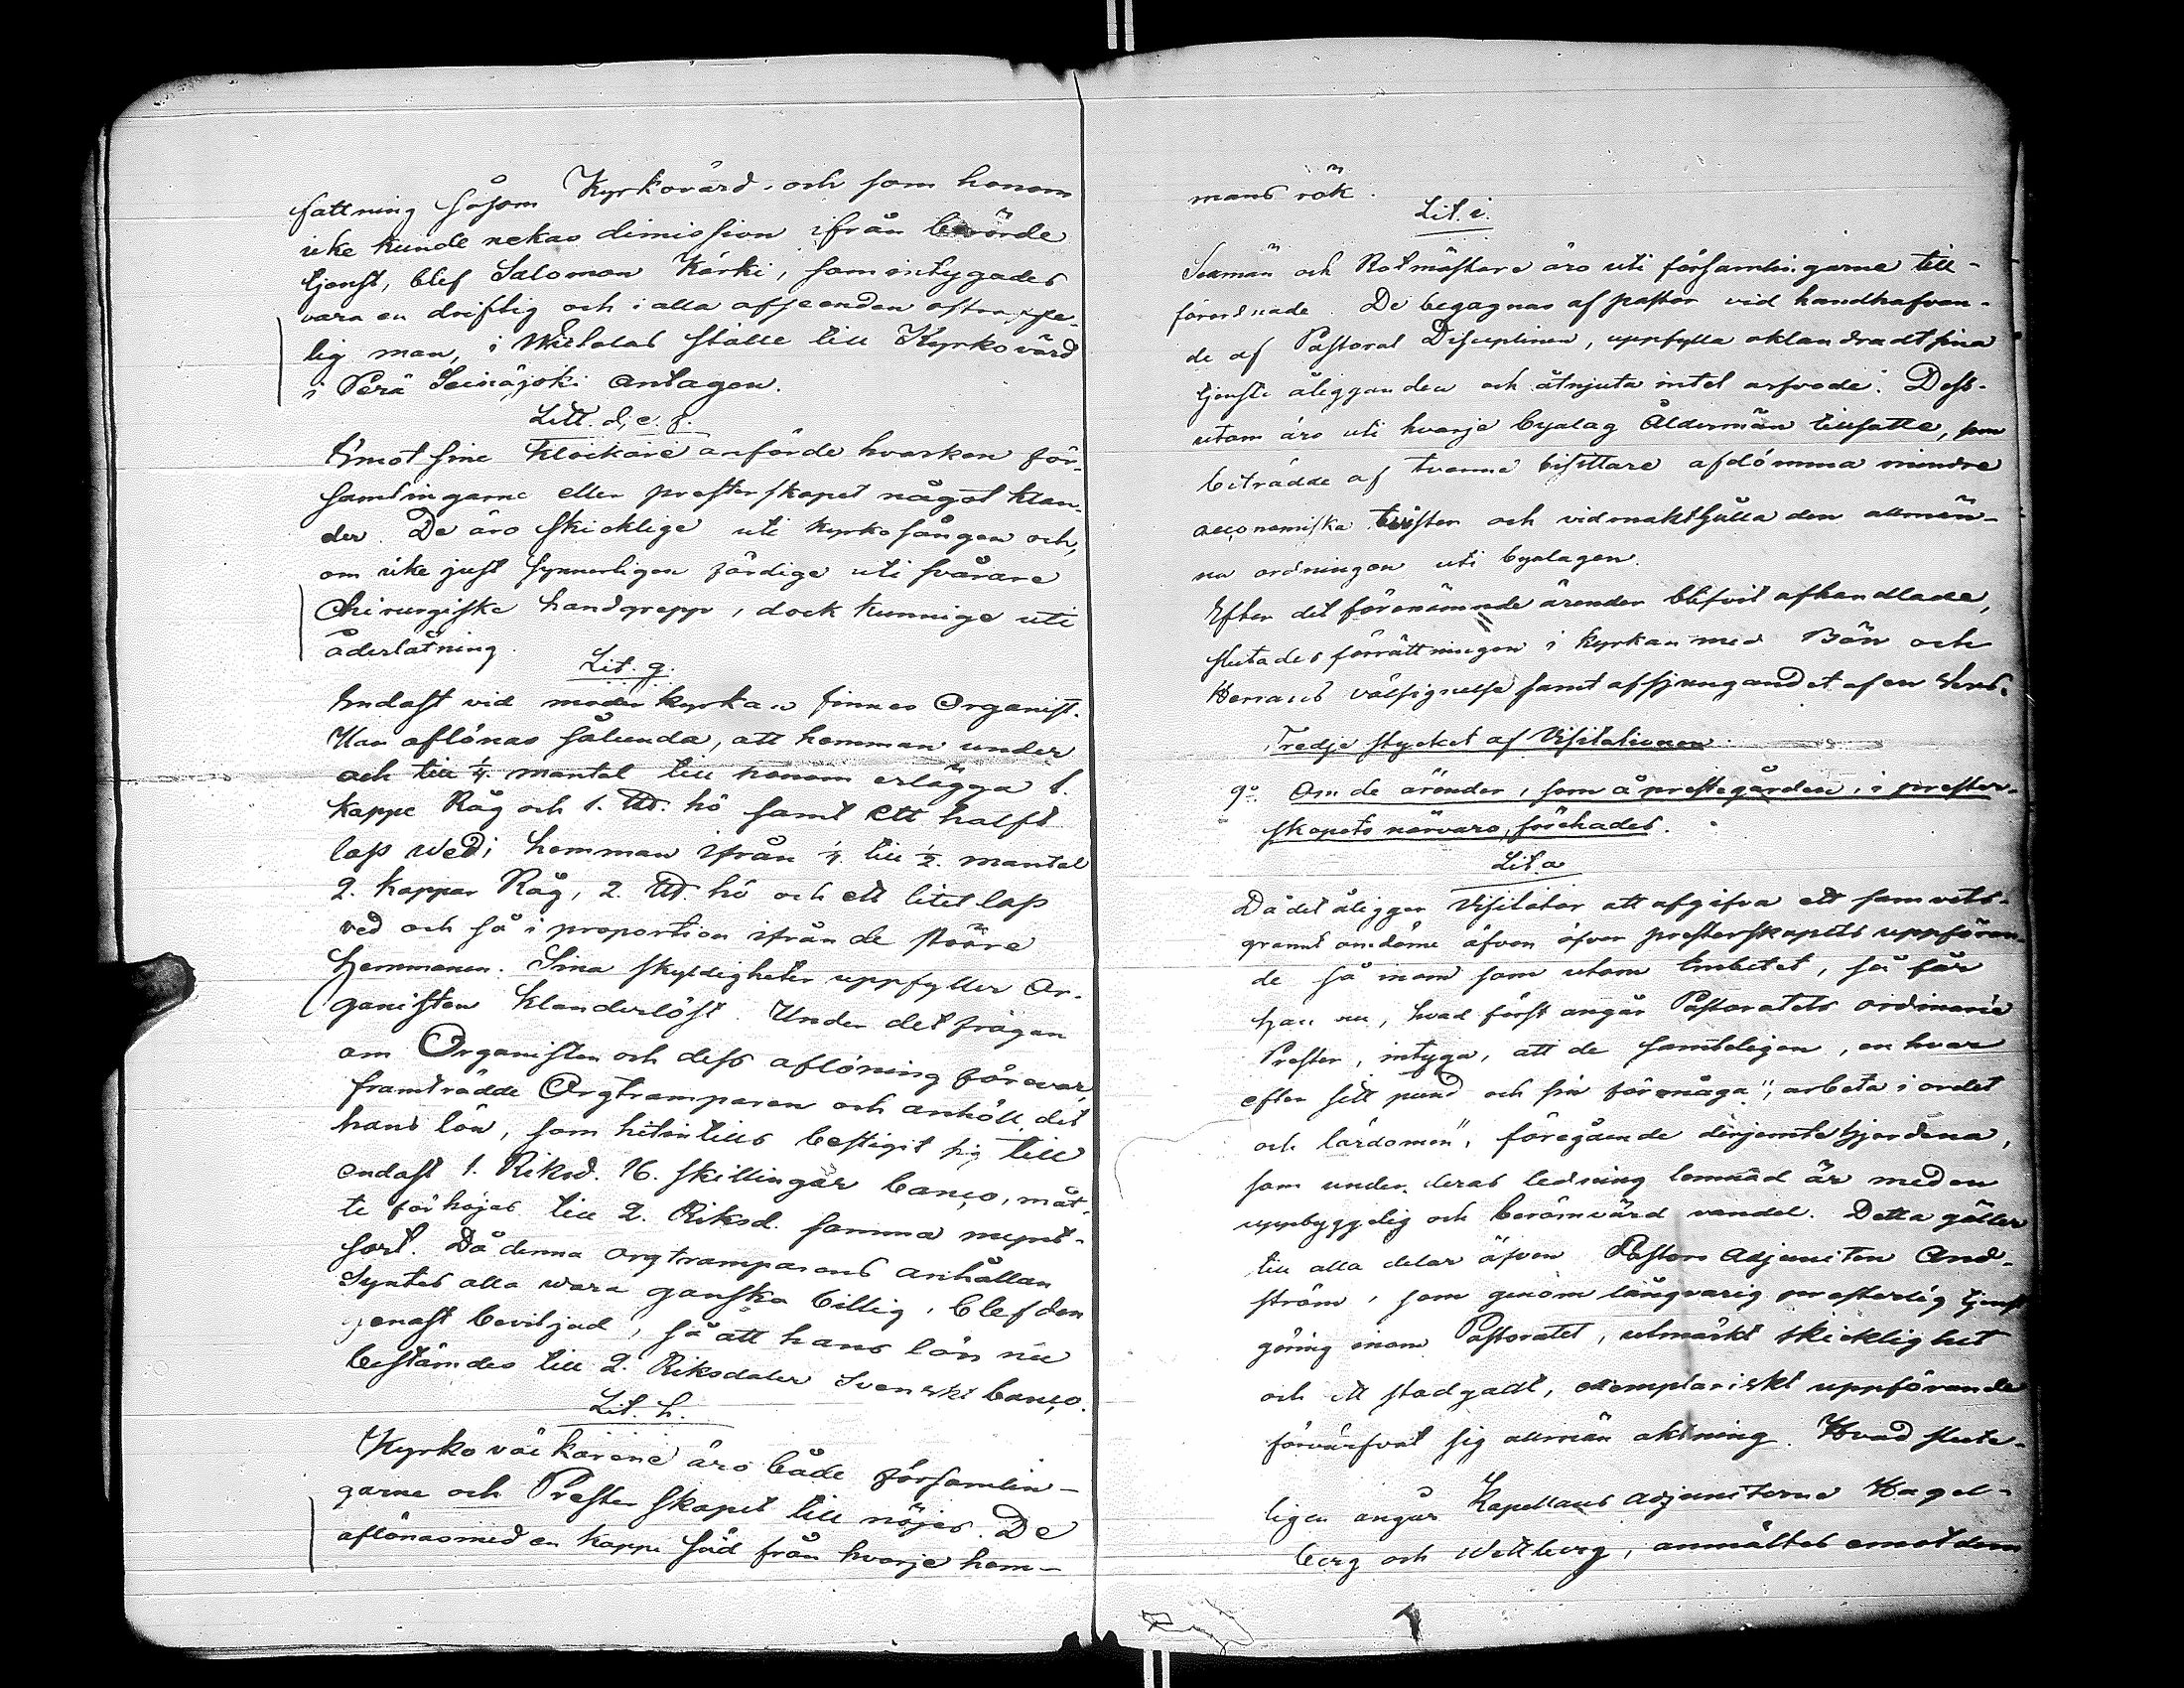 fattning såsom Kyrkovärd, och som honom
icke kunde nekas dimission ifrån berörde
tjenst, blef Salomon Kärki, som intygades
vara en driftig och i alla afseenden
lig man, i ställe till Kyrkovärd
i Perä Seinäjoki antagen.
Litt. d, e. f.
Emot sine Klockare anförde hvarken för-
samlingarne eller presterskapet något klan-
der. De äro skicklige uti kyrkosången och,
om icke just synnerligen färdige uti svårare
Chirurgiske handgrepp, dock kunnige uti
åderlåtning.
Lit. g.
Endast vid moderkyrkan finnes Organist.
Han aflönas sålunda, att hemman under
och till ¼ mantal till honom erlägga 1.
kappe Råg och 1. L℔. hö samt ett halft
lass wed; hemman ifrån ¼ till ½ mantal
2. kappar Råg, 2. L℔. hö och ett litet lass
ved och så i proportion ifrån de större
hemmanen. Sina skyldigheter uppfyller Or-
ganisten klanderlöst. Under det frågan
om Organisten och dess aflöning förevar,
framträdde Orgtramparen och anhöll, det
hans lön, som hitintills bestigit sig till
endast 1. Riksd. 16. skillingar banco, måt-
te förhöjas till 2. Riksd. samma mynt-
sort. Då denna orgtramparens anhållan
syntes alla wara ganska billig, blef den
genast beviljad, så att hans lön nu
bestämdes till 2. Riksdaler Svenskt banco.
Lit. h.
Kyrkoväktarene äro både församlin-
garne och Presterskapet till nöjes. De
aflönas med en kappe säd från hvarje hem-
mans rök.
Lit. i.
Sexmän och Rotmästare äro uti församlingarne till-
förordnade. De begagnas af pastor vid handhafvan-
de af Pastoral Disciplinen, uppfylla oklandradt sina
tjenste åligganden och åtnjuta intet arfvode. Dess-
utom äro uti hvarje byalag Åldermän tillsatte, som
biträdde af tvenne bisittare afdömma mindre
oeconomiska tvister och vidmakthålla den allmän-
na ordningen uti byalagen.
Efter det förenämnde ärender blifvit afhandlade,
slutades förrättningen i kyrkan med Bön och
Herrans välsignelse samt afsjungandet af en vers.
Tredje stycket af Visitationen
9:o Om de ärender, som å prestegården, i prester-
skapets närvaro, förehades.
Lit. a
Då det åligger Visitator att afgifva ett samvets-
grannt omdöme äfven öfver presterskapets uppföran-
de så inom som utom Embetet, så får
han nu, hvad först angår Pastoratets ordinarie
Prester, intyga, att de samteligen, en hvar
efter sitt pund och sin förmåga", arbeta i ordet
och lärdomen", föregående derjemte hjordena,
som under deras ledning lemnad är med en
uppbyggelig och berömvärd vandel. Detta gäller
till alla delar äfven Pastors Adjuncten And-
ström, som genom långvarig presterlig tjenst
göring inom Pastoratet, utmärkt skicklighet
och ett stadgadt, exemplariskt uppförande
förvärfvat sig allmän aktning. Hvad slute-
ligen angår Kapellans Adjuncterne Hagel-
berg och Wettberg, anmältes emot dem